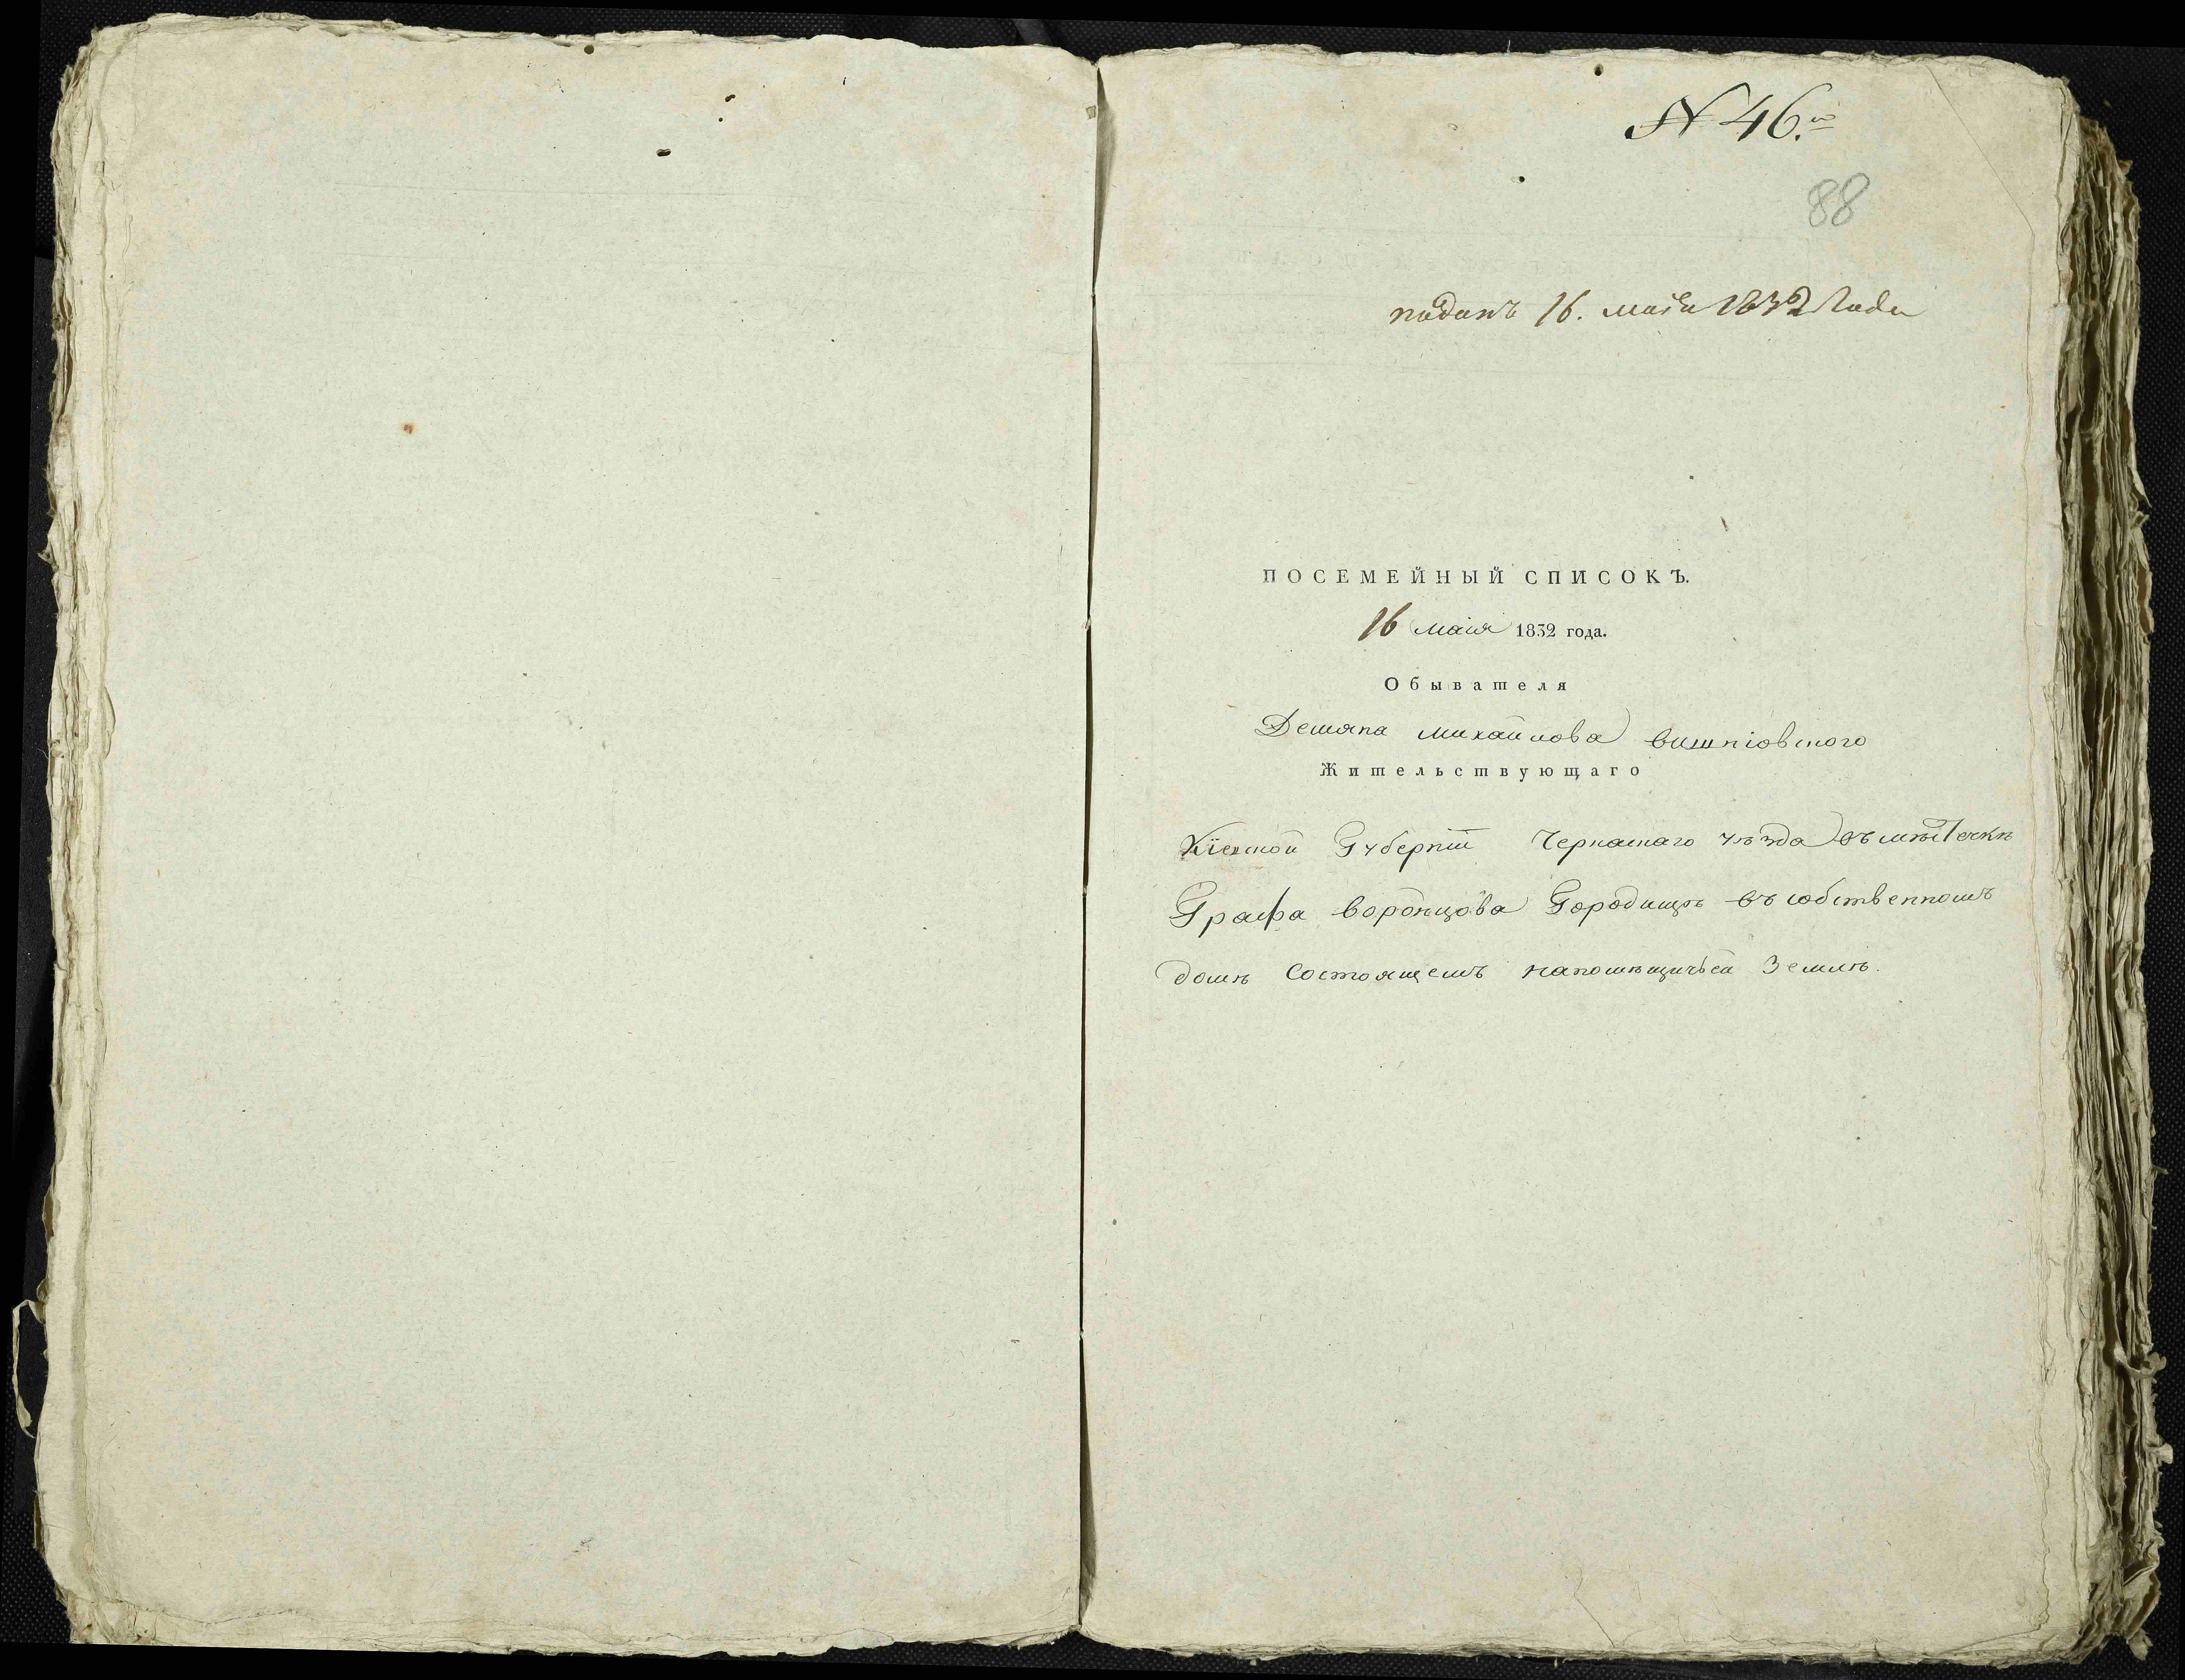 № 46.й
88
поданъ 16. маія 1832 Года
ПОСЕМЕЙНЫЙ СПИСОКЪ.
16 маія 1832 года.
Обывателя
Демяна михайлова вишніовского
Жительствующаго
Кіевской Губерніи Черкаскаго уѣзда въ мѣстечкѣ
Графа воронцова Городищѣ въ собственномъ
домѣ Состоящемъ напомѣщичьей Землѣ.